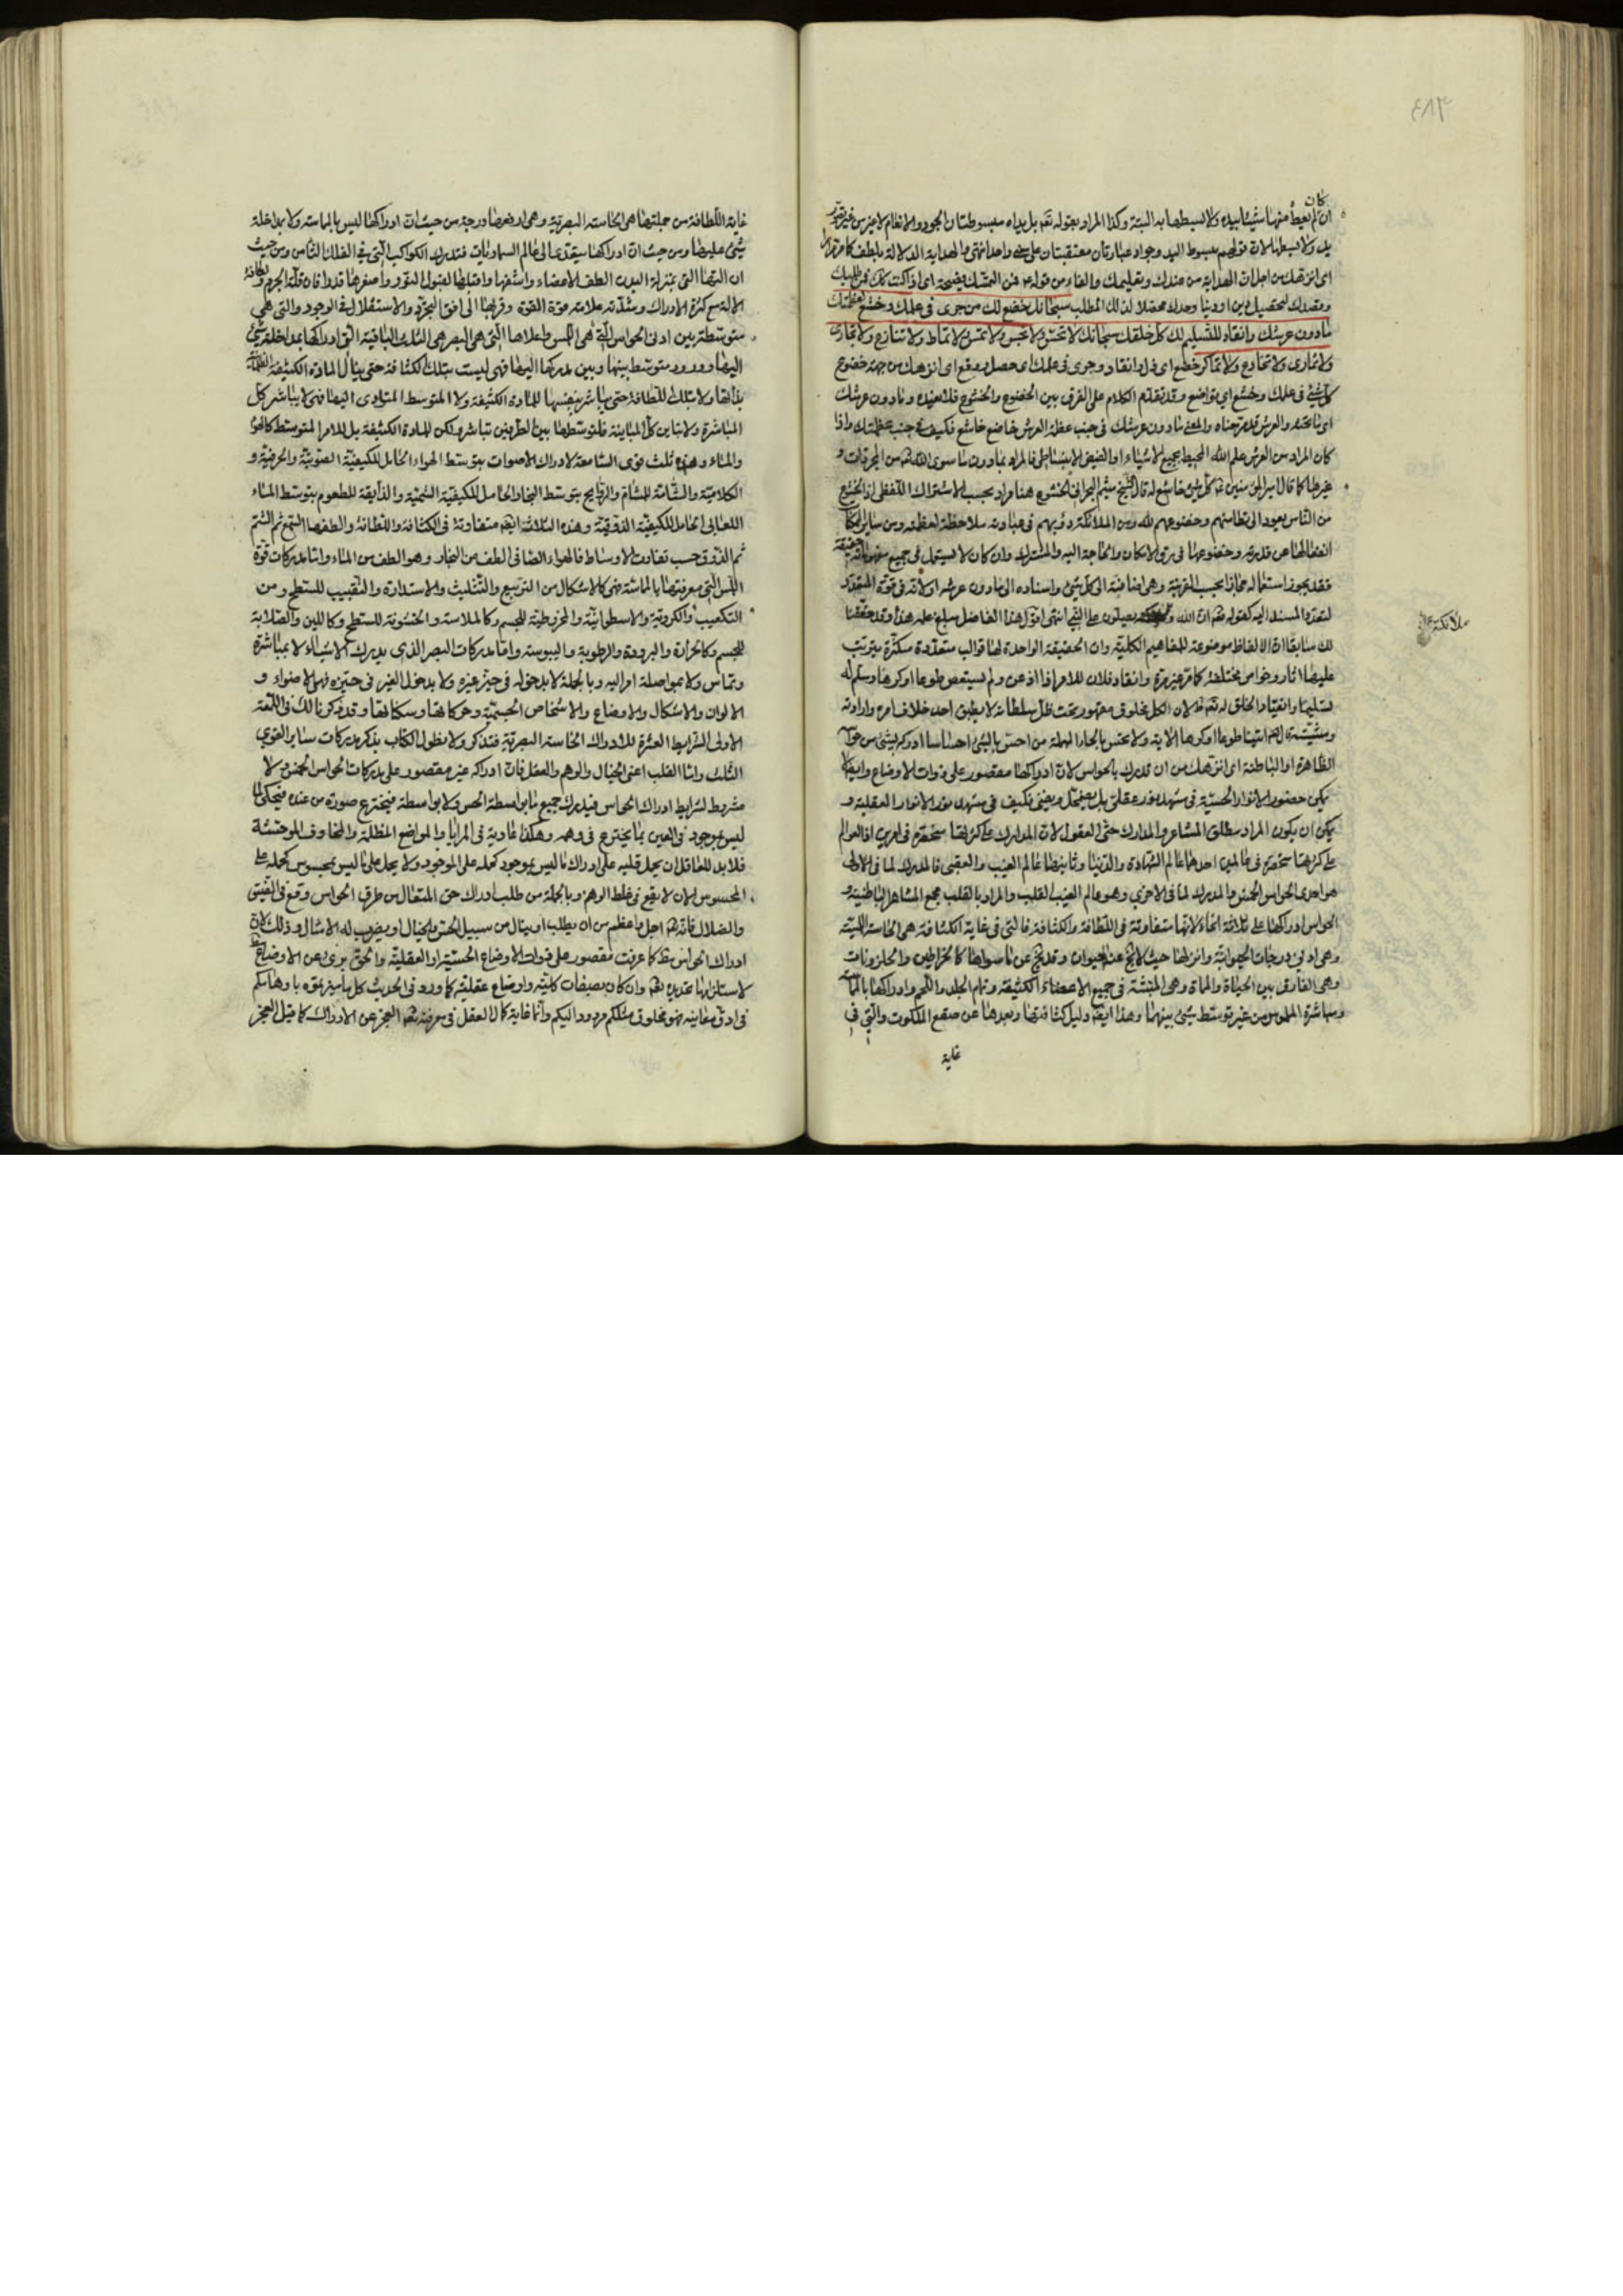 كان
ان لم يعط منها شيئا بيده ولا يبسطها به البتة وكذا المراد بقوله تعم بل يداه مبسوطتان الجود والانعام لا غير من غير تصور
يد ولا بسطها لان قولهم مبسوط اليد وجواد عبارتان معتقبتان على واحد انتهى والهداية الدلالة بلطف كما مر مرارا
اى انزهك من اجل ان الهداية من عندك وتعليمك والفاء من قوله فمن التمسك فصيحة اى اذا كنت كذلك فمن التمسك
وقصدك لتحصيل دين او دنيا وجدك محصلا لذلك المطلب سبحانك خضع لك من جرى فى علمك وخشع لعظمتك
مادون عرشك وانقاد للتسليم لك كل خلقك سبحانك لا تحس ولا تجس ولا تمس ولا تماط ولا تنازع ولا تجارى
ولا تمارى ولا تخادع ولا تماكر خضع اى ذل وانقاد وجرى فى علمك اى حصل ووقع اى انزهك من جهة خضوع
كل شئ فى علمك وخشع اى تواضع وقد تقدم الكلام على الفرق بين الخضوع والخشوع فلا نعيده وما دون عرشك
اى ما تحته والعرش قد شرحناه والمعنى ما دون عرشك فى جنب عظمة العرش خاضع خاشع فكيف فى جنب عظمتك واذا
كان المراد من العرش علم الله المحيط بجميع الاشياء او الفيض الانبساطى فالمراد بمادون ما سوى الله تعم من المجردات و
غيرها كما قال امير المؤمنين ع كل شئ خاشع له قال الشيخ ميثم البحرانى الخشوع هنا مراد بحسب الاشتراك اللفظى اذ الخشوع
من الناس يعود الى تطامنهم وخضوعهم لله ومن الملائكة دؤبهم فى عبادته ملاحظة لعظمته ومن ساير الممكنات
انفعالها عن قدرته وخضوعها فى رق الامكان والحاجة اليه والمشترك وان كان لا يستعمل فى جميع مفهوماته حقيقة
فقد يجوز استعماله مجازا بحسب القرينة وهى اضافته الى كل شئ واسناده الى مادون عرشه او لانه فى قوة المتعدد
لتعدد المسند اليه كقوله تعم ان الله وملائكته يصلون على النبى انتهى اقول هذا الفاضل مبلغ علمه هذا وقد حققنا
ملائكته
لك سابقا ان الالفاظ موضوعة للمفاهيم الكلية وان الحقيقة الواحدة لها قوالب متعددة متكثرة يترتب
عليها اثار وخواص مختلفة كما مر غير مرة وانقاد فلان للامر اذا اذعن ولم يستعص طوعا او كرها وسلم له
تسليما وانقياد الخلق له تعم لان الكل مخلوق مقهور تحت ظل سلطانه لا يطيق احد خلاف امره وارادته
ومشيته قال تعم ائتيا طوعا او كرها الاية ولا تحس بالحاء المهملة من احس بالشئ احساسا ادركه بشئ من حواسه
الظاهرة او الباطنة اى انزهك من ان تدرك بالحواس لان ادراكها مقصور على ذوات الاوضاع وايضا لا
يمكن حضور الانوار الحسية فى مشهد نور عقلى بل يضمحل ويفنى فكيف فى مشهد نور الانوار العقلية و
يمكن ان يكون المراد مطلق المشاعر والمدارك حتى العقول لان المدارك على كثرتها منحصرة فى امرين اذ العوالم
على كثرتها منحصرة فى عالمين احدهما عالم الشهادة والدنيا وثانيهما عالم الغيب والعقبى فالمدرك لما فى الاولى
هو احدى الحواس الخمس والمدرك لما فى الاخرى وهو عالم الغيب القلب والمراد بالقلب مجمع المشاعر الباطنية و
الحواس ادراكها على ثلاثة انحاء لانها متفاوتة فى اللطافة والكثافة فالتى فى غاية الكثافة هى الحاسة اللمسية
وهى ادنى درجات الحيوانية وانزلها حيث لا يخ عنها حيوان وقد يخ عن ما سواها كالخراطين والحلزونات
وهى الفارق بين الحياة والممات وهى المنبثة فى جميع الاعضاء الكثيفة وتمام الجلد واللحم وادراكها بالمماسة
ومباشرة الملموس من غير توسط شئ بينهما وهذا ايضا دليل كثافتها وبعدها عن صقع الملكوت والتى فى
غاية
غاية اللطافة من جملتها هى الحاسة البصرية وهى ارفعها درجة من حيث ان ادراكها ليس بالمماسة ولا بمداخلة
شئ عليها ومن حيث ان ادراكها يتعدى الى عالم السماويات فتدرك الكواكب التى فى الفلك الثامن ومن حيث
ان التها التى بمنزلة البدن الطف الاعضاء واشفها واقبلها لقبول النور واصغرها قدرا فان قلة الجرم ولطافة
الالة مع كثرة الادراك وشدته علامة قوة القوة وقربها الى افق التجرد والاستقلال فى الوجود والتى هى
متوسطة بين ادنى الحواس التى هى اللمس واعلاها التى هى البصر هى الثلاث الباقية التى ادراكها بمداخلة شئ
اليها وورود متوسط بينها وبين مدركها اليها فهى ليست بتلك الكثافة حتى ينال المادة الكثيفة الظلمانية
بذاتها ولا بتلك اللطافة حتى يباشر بنفسها للمادة الكثيفة ولا المتوسط المتادى اليها فهى لا يباشر كل
المباشرة ولا تباين كل المباينة فلتوسطها بين الطرفين تباشر لكن لا المادة الكثيفة بل للامر المتوسط كالهواء
والماء وهذه ثلث قوى السامعة لادراك الاصوات بتوسط الهواء الحامل للكيفية الصوتية والحرفية و
الكلامية والشامة للمشام والروايح بتوسط البخار الحامل للكيفية الشمية والذايقة للطعوم بتوسط الماء
اللعابى الحامل للكيفية الذوقية وهذه الثلاث ايضا متفاوتة فى الكثافة واللطافة والطفها السمع ثم الشم
ثم الذوق حسب تفاوت الاوساط فالهواء الصافى الطف من البخار وهو الطف من الماء واما مدركات قوة
اللمس التى معرفتها بالمماسة فهى كالاشكال من التربيع والتثليث والاستدارة والتقبيب للسطح ومن
التكعيب والكروية والاسطوانية والمخروطية للجسم وكالملاسة والخشونة للسطح وكاللين والصلابة
للجسم وكالحرارة والبرودة والرطوبة واليبوسة واما مدركات البصر الذى يدرك الاشياء لا بمباشرة
وتماس ولا بمواصلة امر اليه وبالجملة لا بدخوله فى حيز غيره ولا بدخول الغير فى حيزه فهى الاضواء و
الالوان والاشكال والاوضاع والاشخاص الجسمية وحركاتها وسكناتها وقد ذكرنا لك فى اللمعة
الاولى الشرايط العشرة للادراك الحاسة البصرية فتذكر ولا نطول الكتاب بذكر مدركات ساير القوى
الثلث واما القلب اعنى الخيال والوهم والعقل فان ادراكه غير مقصور على مدركات الحواس الخمس ولا
مشروط بشرايط ادراك الحواس فيدرك جميع ما بواسطة الحس ولا بواسطة فيخترع صورة من عنده فيحكى لما
ليس بموجود فى العين بما يخترع فى وهمه وهكذا عادية فى المرايا والمواضع المظلمة والمخاوف الموحشة
فلا بد للعاقل ان يحمل قلبه على ادراك ما ليس بموجود كحمله على الموجود ولا يحمل على ما ليس بمحسوس كحمله على
المحسوس لان لا يقع فى غلط الوهم وبالجملة من طلب ادراك حق المتعال من طرق الحواس وقع فى التيه
والضلال فانه تعم اجل واعظم من ان يطلب او ينال من سبيل الحس والخيال او يضرب له الامثال وذلك لان
ادراك الحواس كما عرفت مقصور على ذوات الاوضاع الحسية او العقلية والحق برئ عن الاوضاع مطلقا
لاستلزامها تحديده تعم وان كان بصفات كلية واوضاع عقلية كما ورد فى الحديث كل ما ميزتموه باوهامكم
فى ادق معانيه فهو مخلوق مثلكم مردود اليكم وانما غاية كمال العقل فى معرفته تعم العجز عن الادراك كما قيل العجز